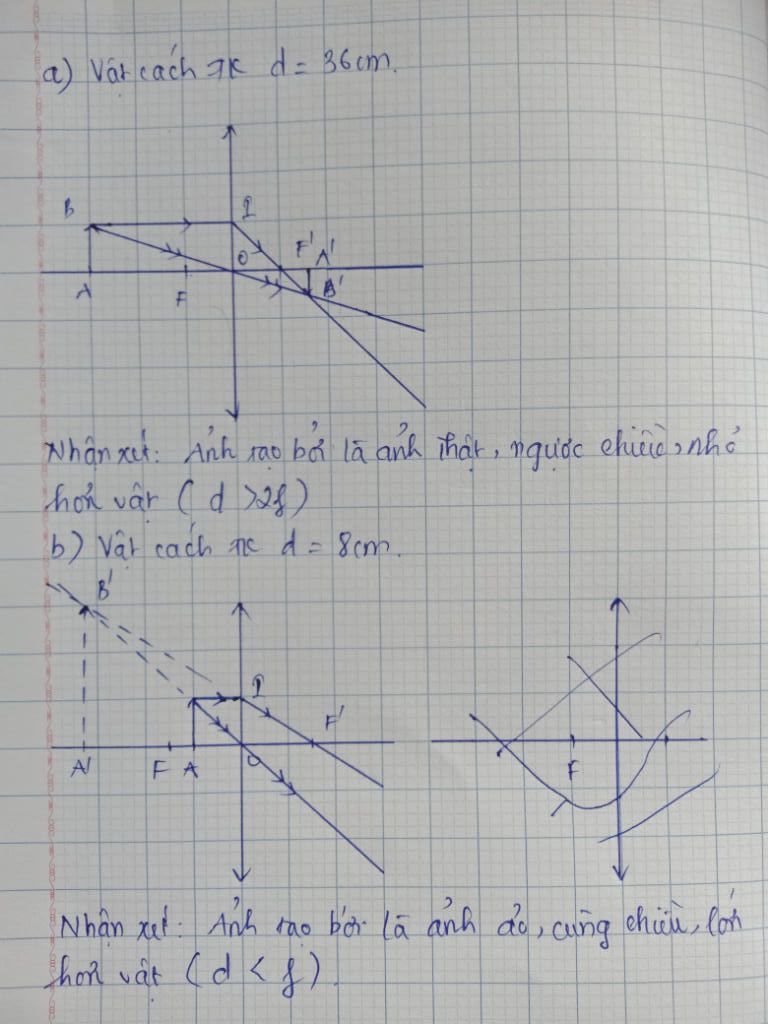 a) Vật cách TK d = 36cm.
B I
F' A'
O
A F B'
Nhận xét: Ảnh tạo bởi là ảnh thật, ngược chiều, nhỏ
hơn vật ( d >2f)
b) Vật cách TK d = 8cm.
B'
I
F'
A' F A O
F
Nhận xét: Ảnh tạo bởi là ảnh ảo, cùng chiều, lớn
hơn vật ( d < f ).